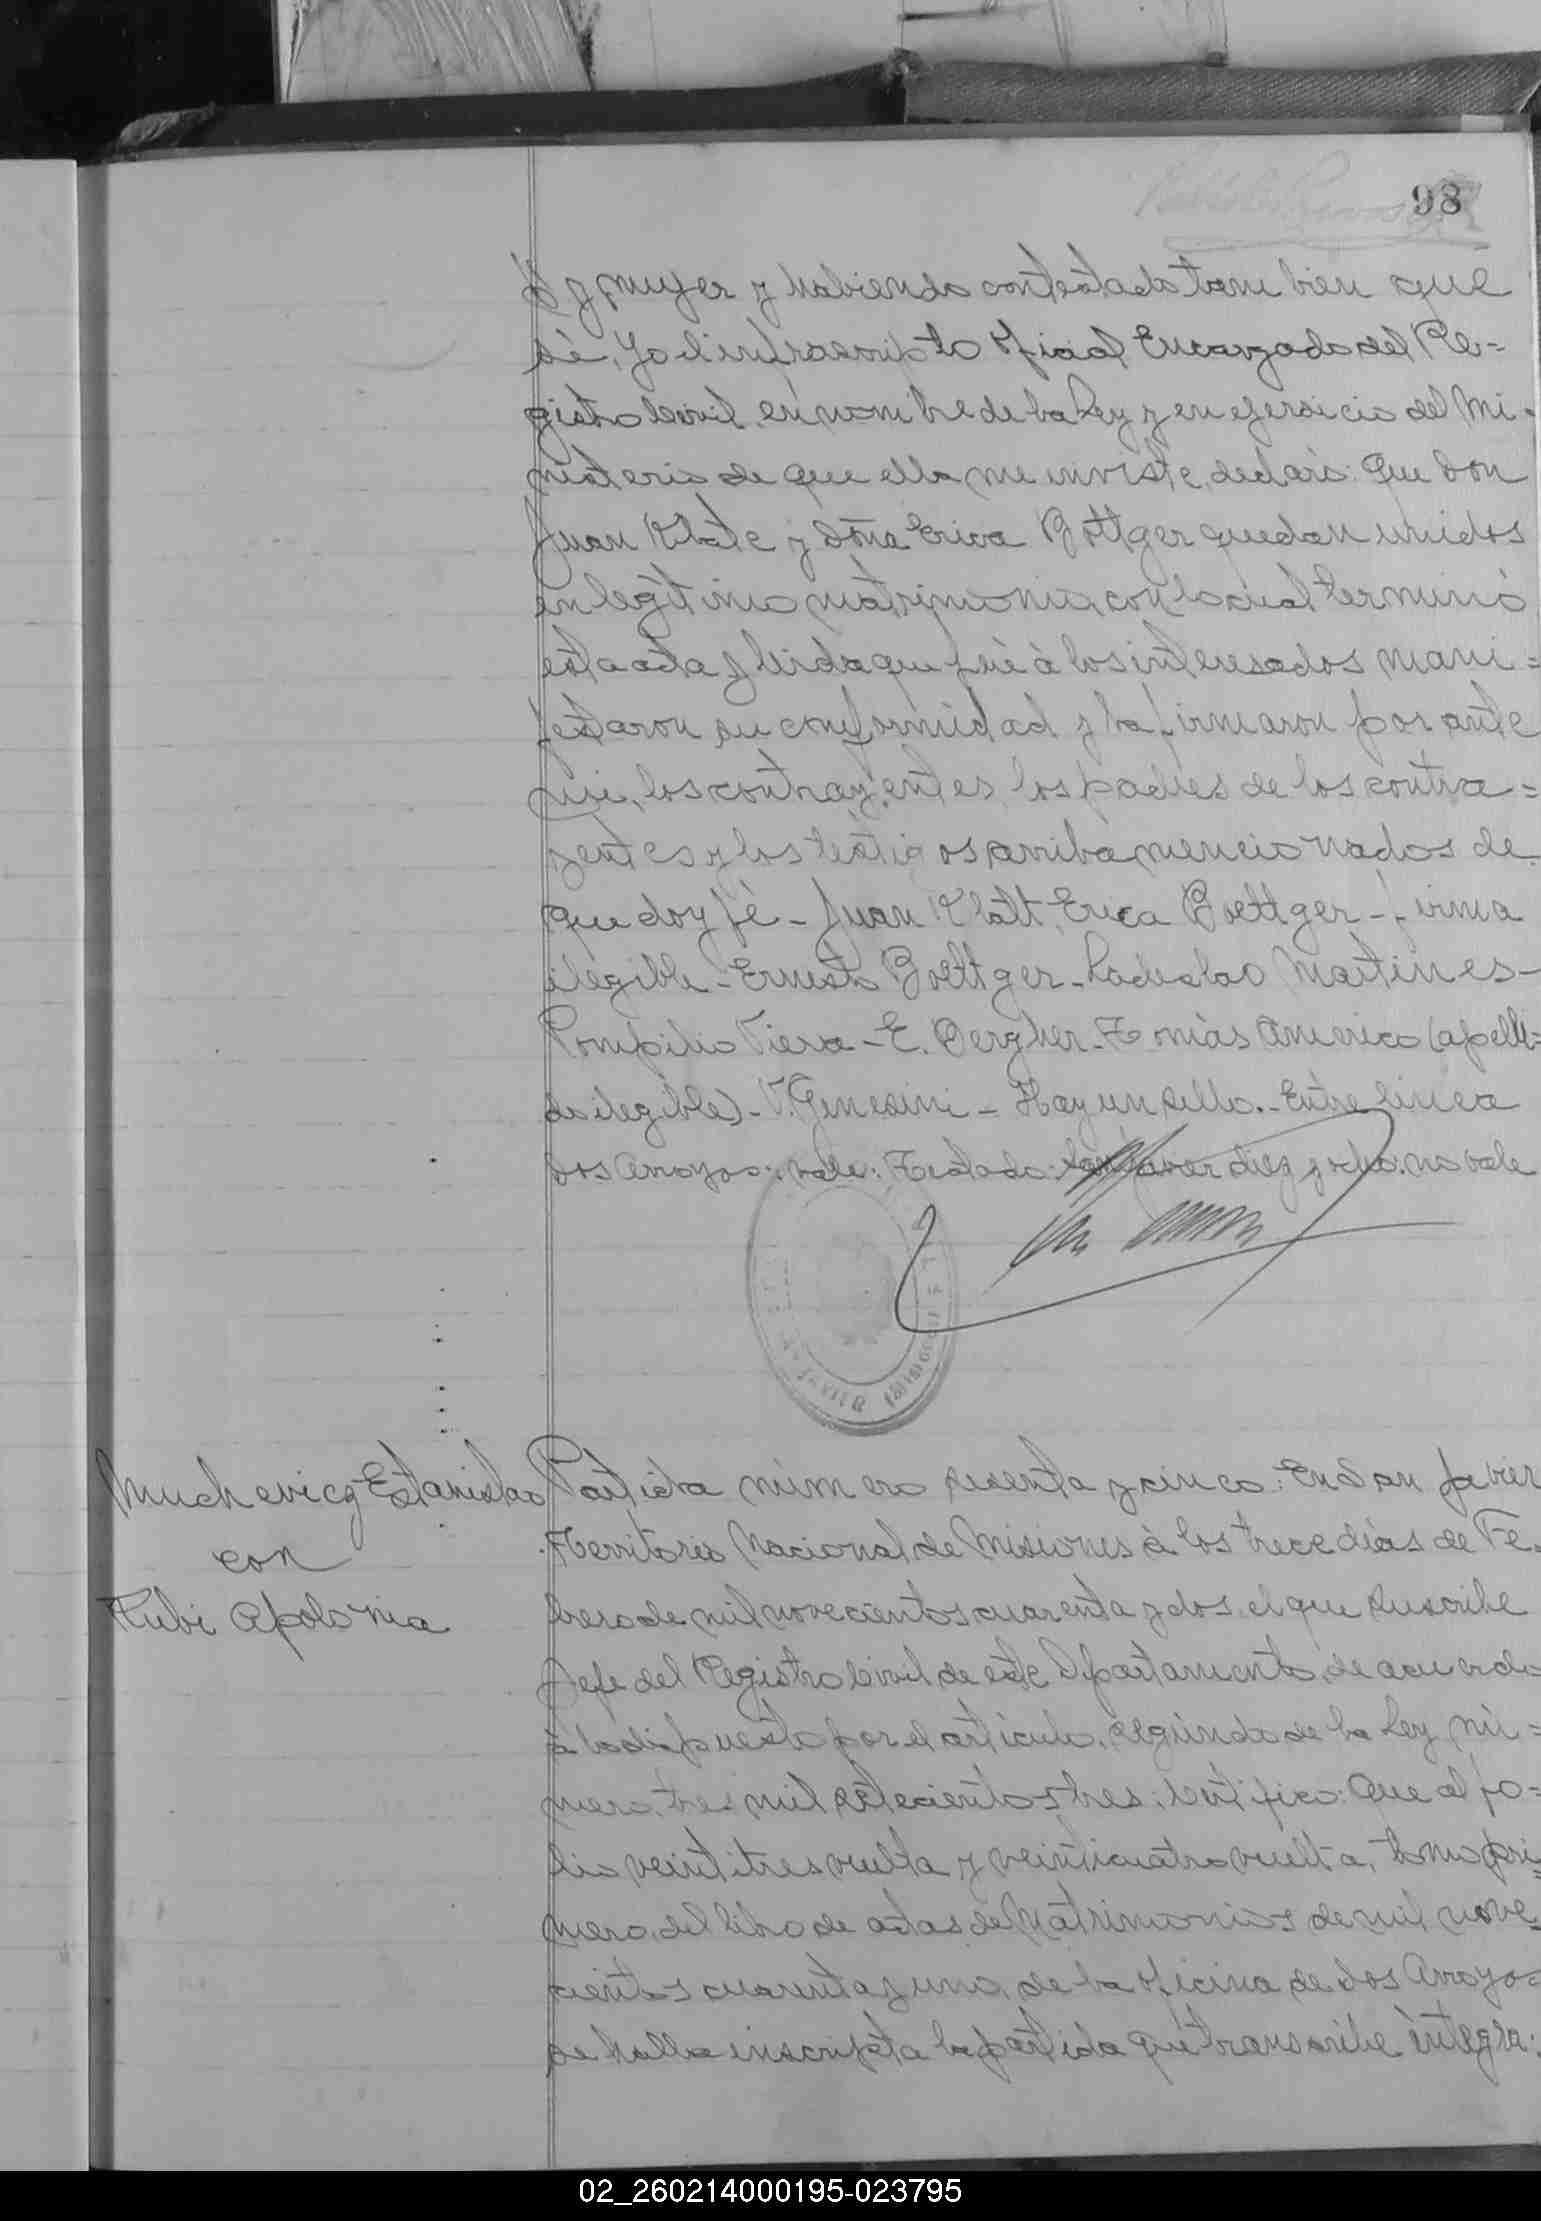 98
y mujer y habiendo contestado tam bien que
sé, Yo el infrascripto Oficial Encargado del Re=
gistro Civil, en nombre de la Ley y en ejersicio del Mi-
nisterio de que ella me inviste, declaró: Que Don
Juan Klate y Doña Erica Bottger quedan unidos
en legítimo matrimonio, con lo cual terminó
esta acta y leida que fué á los interesados mani=
festaron su conformidad y la firmaron por ante
mi, los contrayentes, los padres de los contra=
yentes y los testigos arriba mencionados de
que doy fé - Juan Klatt, Erica Boettger - firma
ilegible - Ernesto Boettger - Ladislao Martines -
Pompilio Viera - E. Dergher - Tomás Americo (apelli=
do ilegible) - V. Genesini - Hay un sello. - Entre linea
Dos Arroyos: vale: Testado: San Javier diez y ocho: no vale
Muchevicz Estanislao
con
Kubi Apolonia
Partida número sesenta y cinco: En San Javier
Territorio Nacional de Misiones á los trece dias de Fe-
brero de mil novecientos cuarenta y dos, el que suscribe
Jefe del Registro Civil de este Dpartamento, de acuerdo
á lo dispuesto por el articulo, segundo de la Ley nú=
mero, tres mil setecientos tres; Certifico: Que al fo=
lio veintitres vuelta y veinticuatro vuelta, tomo pri=
mero, del libro de actas de Matrimonios de mil nove=
cientos cuarenta y uno, de la oficina de Dos Arroyos
se halla inscripta la partida que transcribe integra:
02_260214000195-023795